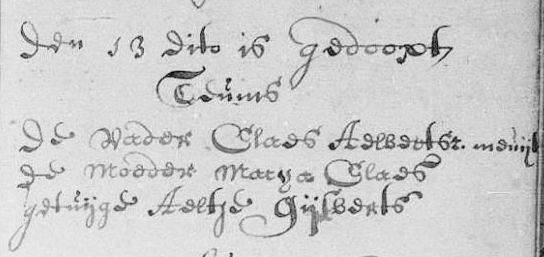 Den 13 dito is gedoopt
Teunis
De Vader Claes Aelbertsz. meuijs
de Moeder Marya Claes
getuijge Aeltje Gijsberts